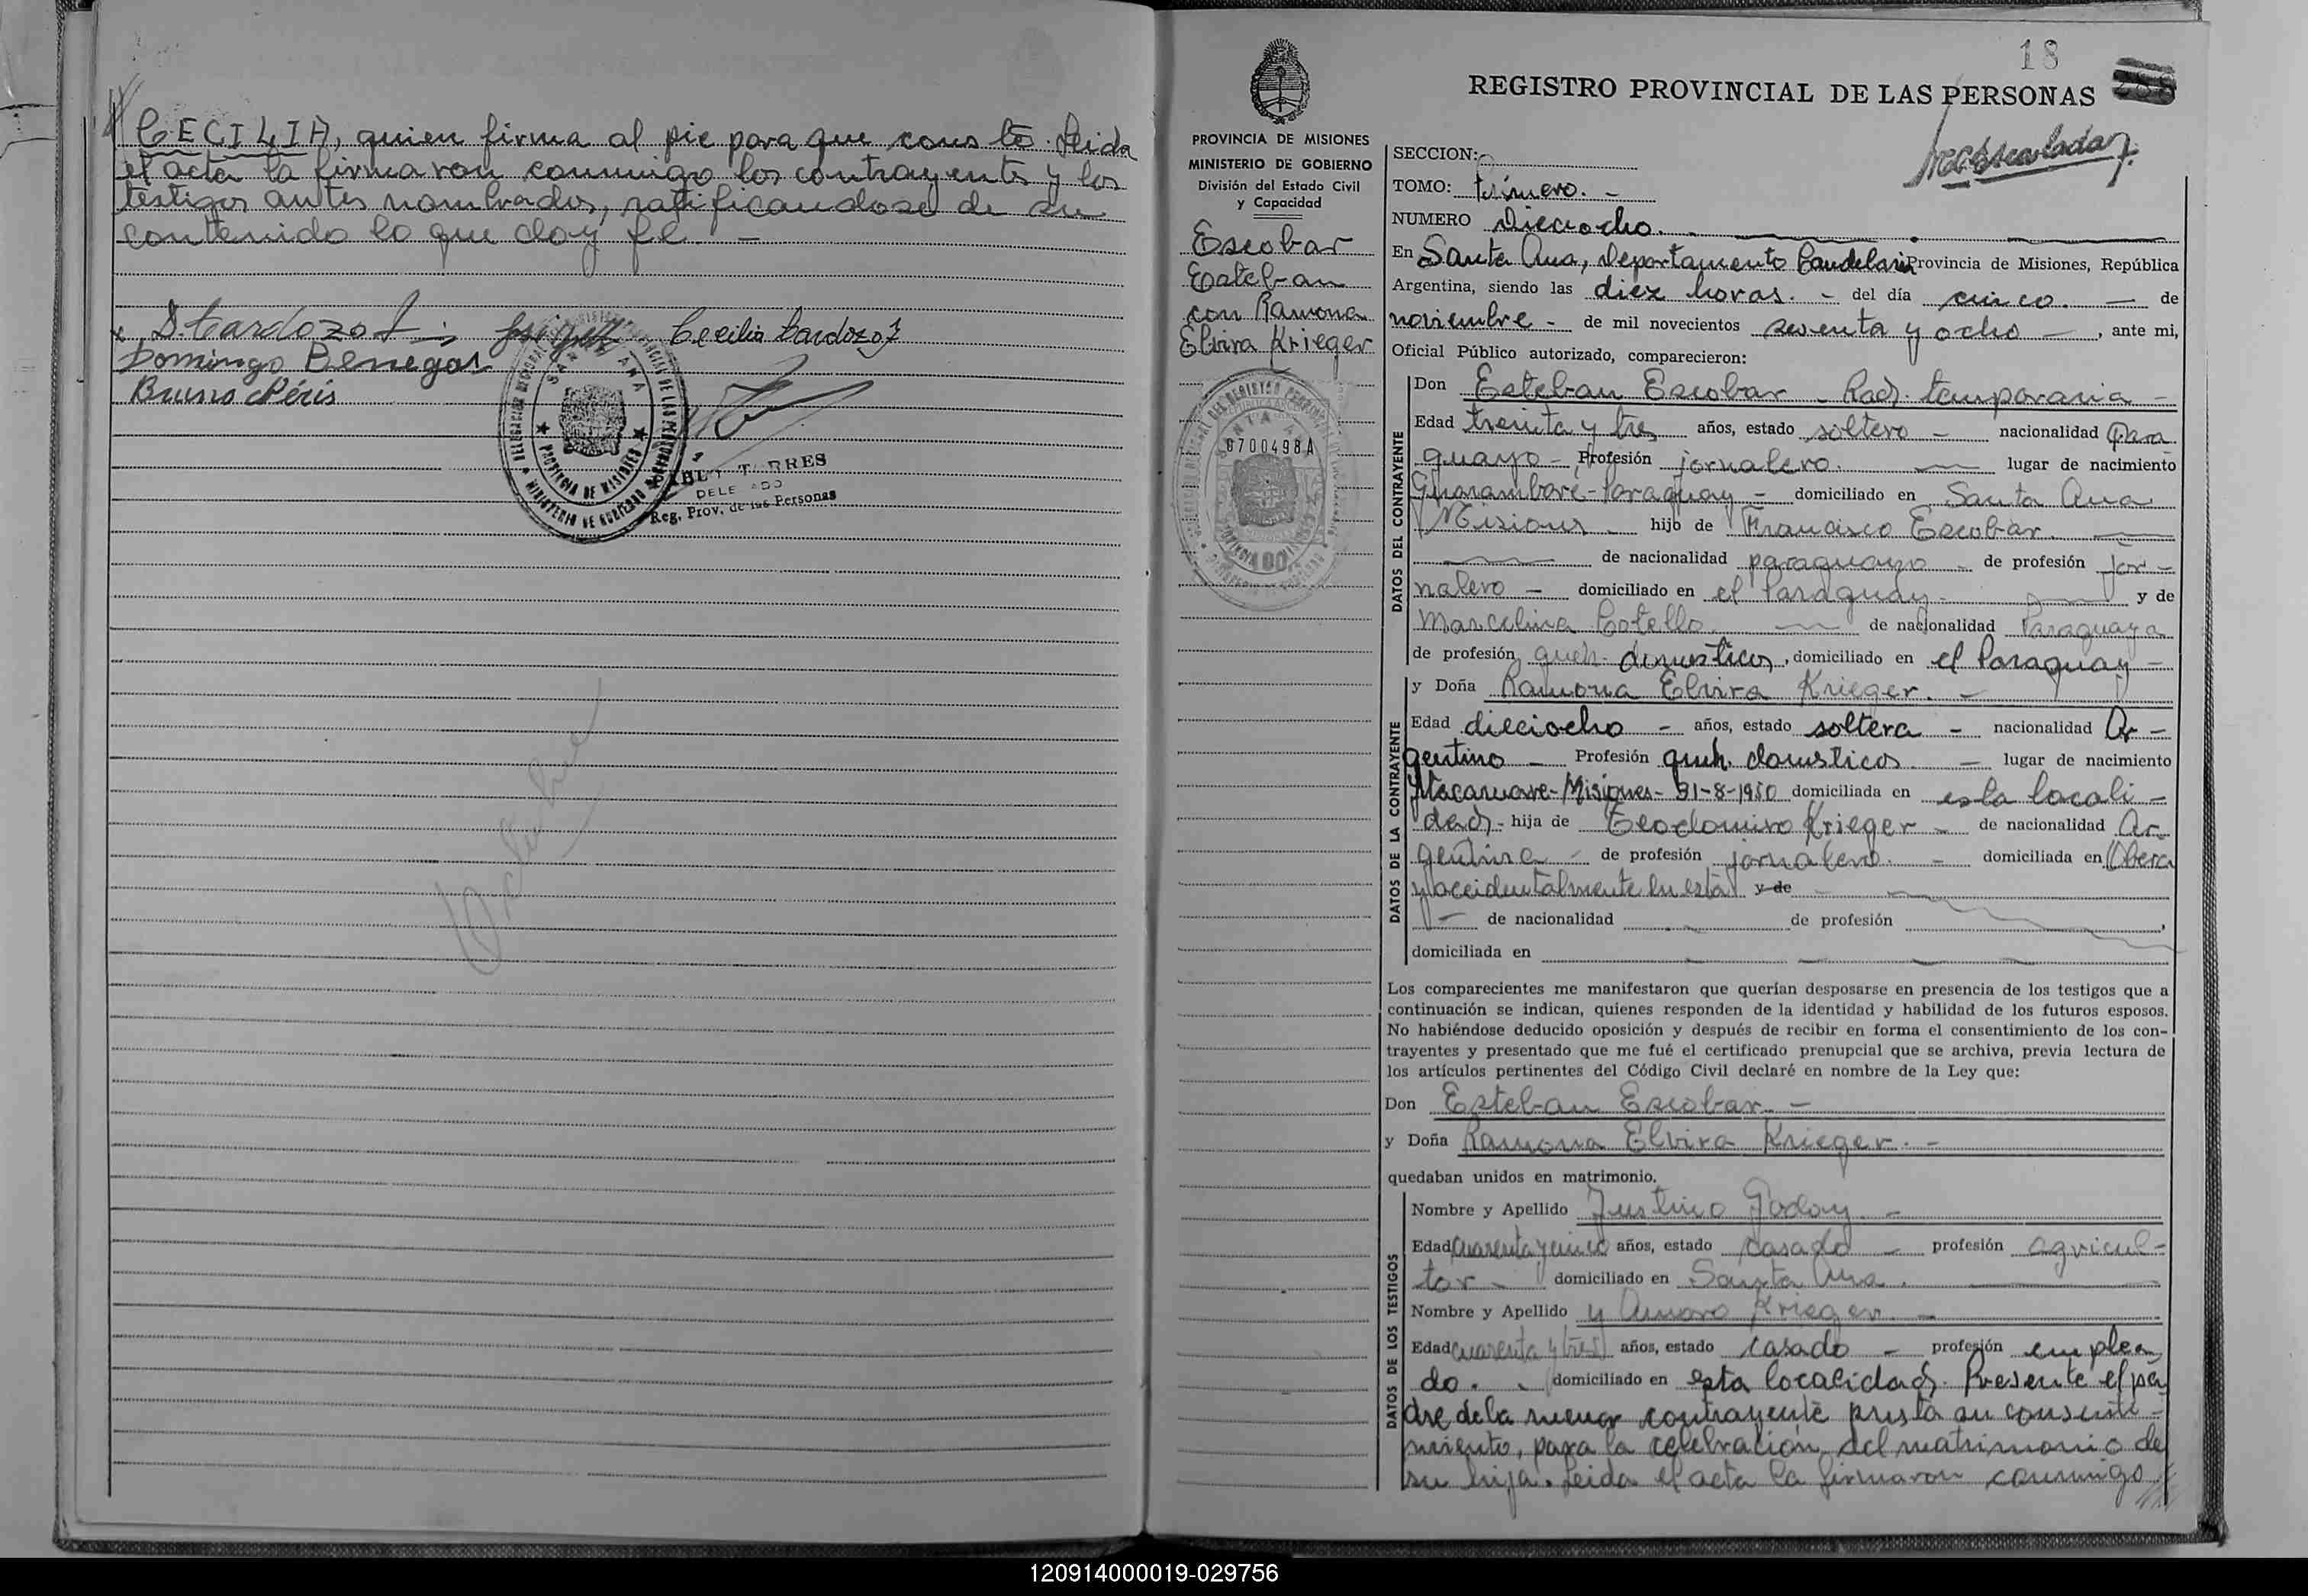 CECILIA, quien firma al pie para que conste. Leida
el acta la firmaron conmigo los contrayentes y los
testigos antes nombrados, ratificandose de su
contenido lo que doy fe. —
D. Cardozo Cecilia Cardozo
Domingo Benegas
Bruno Péris
SANTA ANA
PROVINCIA DE MISIONES
TORRES
DELEGADO
Reg. Prov. de las Personas
18
REGISTRO PROVINCIAL DE LAS PERSONAS
PROVINCIA DE MISIONES
MINISTERIO DE GOBIERNO
División del Estado Civil
y Capacidad
Escobar
Esteban
con Ramona
Elvira Krieger
6700498A
SECCION:
TOMO: Primero. —
NUMERO Dieciocho. —
En Santa Ana, Departamento Candelaria Provincia de Misiones, República
Argentina, siendo las diez horas. — del día cinco. — de
noviembre — de mil novecientos sesenta y ocho —, ante mi,
Oficial Público autorizado, comparecieron:
DATOS DEL CONTRAYENTE
Don Esteban Escobar — Rad. temporaria —
Edad treinta y tres años, estado soltero — nacionalidad Para
guayo — Profesión jornalero. — lugar de nacimiento
Guarambaré-Paraguay — domiciliado en Santa Ana
Misiones — hijo de Francisco Escobar. —
— de nacionalidad paraguayo — de profesión jor-
nalero — domiciliado en el Paraguay — y de
Marcelina Cotello — de nacionalidad Paraguaya
de profesión queh. domesticos, domiciliado en el Paraguay —
y Doña Ramona Elvira Krieger. —
DATOS DE LA CONTRAYENTE
Edad dieciocho — años, estado soltera — nacionalidad Ar-
gentina — Profesión queh. domesticos — lugar de nacimiento
Itacaruaré-Misiones- 31-8-1950 domiciliada en esta locali-
dad — hija de Teodomiro Krieger — de nacionalidad Ar-
gentina — de profesión jornalero. — domiciliada en Oberá
y accidentalmente en esta y de —
— de nacionalidad — de profesión
domiciliada en —
Los comparecientes me manifestaron que querían desposarse en presencia de los testigos que a
continuación se indican, quienes responden de la identidad y habilidad de los futuros esposos.
No habiéndose deducido oposición y después de recibir en forma el consentimiento de los con-
trayentes y presentado que me fué el certificado prenupcial que se archiva, previa lectura de
los artículos pertinentes del Código Civil declaré en nombre de la Ley que:
Don Esteban Escobar. —
y Doña Ramona Elvira Krieger. —
quedaban unidos en matrimonio.
DATOS DE LOS TESTIGOS
Nombre y Apellido Justino Godoy. —
Edad cuarenta y cinco años, estado casado — profesión agricul-
tor — domiciliado en Santa Ana. —
Nombre y Apellido y Amaro Krieger. —
Edad cuarenta y tres años, estado casado — profesión emplea
do. — domiciliado en esta localidad. Presente el pa
dre de la menor contrayente presta su consenti-
miento, para la celebración del matrimonio de
su hija. Leida el acta la firmaron conmigo
120914000019-029756